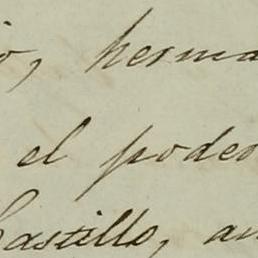 o, herma
el poder
Castillo, an